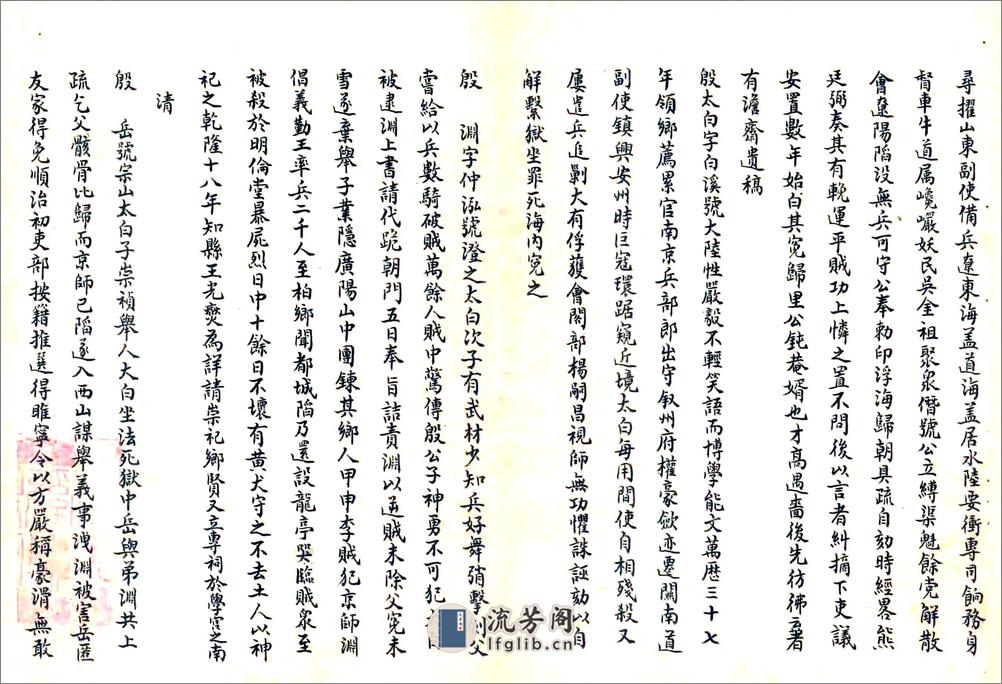 尋擢山東副使備兵遼東海盖道海盖居水陸要衝專司餉務身
督車牛道属巉巖妖民吳全祖聚衆僭號公立縛渠魁餘党解散
會遼陽陷没無兵可守公奉勅印浮海歸朝具疏自刻時經畧熊
廷弼奏其有輓運平賊功上憐之置不問後以言者糾摘下吏議
安置數年始白其冤歸里公鈍菴婿也才髙遇嗇後先彷彿云著
有澹齋遺稿
殷太白字白溪號大陸性嚴毅不輕笑語而博學能文萬曆三十七
年領鄉薦累官南京兵部郎出守叙州府權豪歛迹遷關南道
副使鎮興安州時巨寇環踞窺近境太白每用間使自相殘殺又
屡遣兵追剿大有俘獲會閣部楊嗣昌視師無功懼誅誣劾以自
解繫獄坐罪死海内寃之
殷 淵字仲泓號澄之太白次子有武材少知兵好舞矟擊劍父
嘗給以兵數騎破賊萬餘人賊中驚傳殷公子神勇不可犯
被逮淵上書請代跪朝門五日奉旨詰責淵以逆賊未除父冤未
雪遂棄舉子業隱廣陽山中團鍊其鄉人甲申李賊犯京師淵
倡義勤王率兵二千人至柏鄉聞都城陷乃還設龍亭哭臨賊衆至
被殺於明倫堂暴屍烈日中十餘日不壞有黄犬守之不去土人以神
祀之乾隆十八年知縣王光燮為詳請崇祀鄉賢又立專祠於學宮之南
清
殷 岳號宗山太白子崇禎舉人大白坐法死獄中岳與弟淵共上
疏乞父骸骨比歸而京師已陷遂入西山謀舉義事洩淵被害岳匿
友家得免順治初吏部按籍推選得睢寧令以方嚴稱豪滑無敢
流芳阁
lfglib.cn